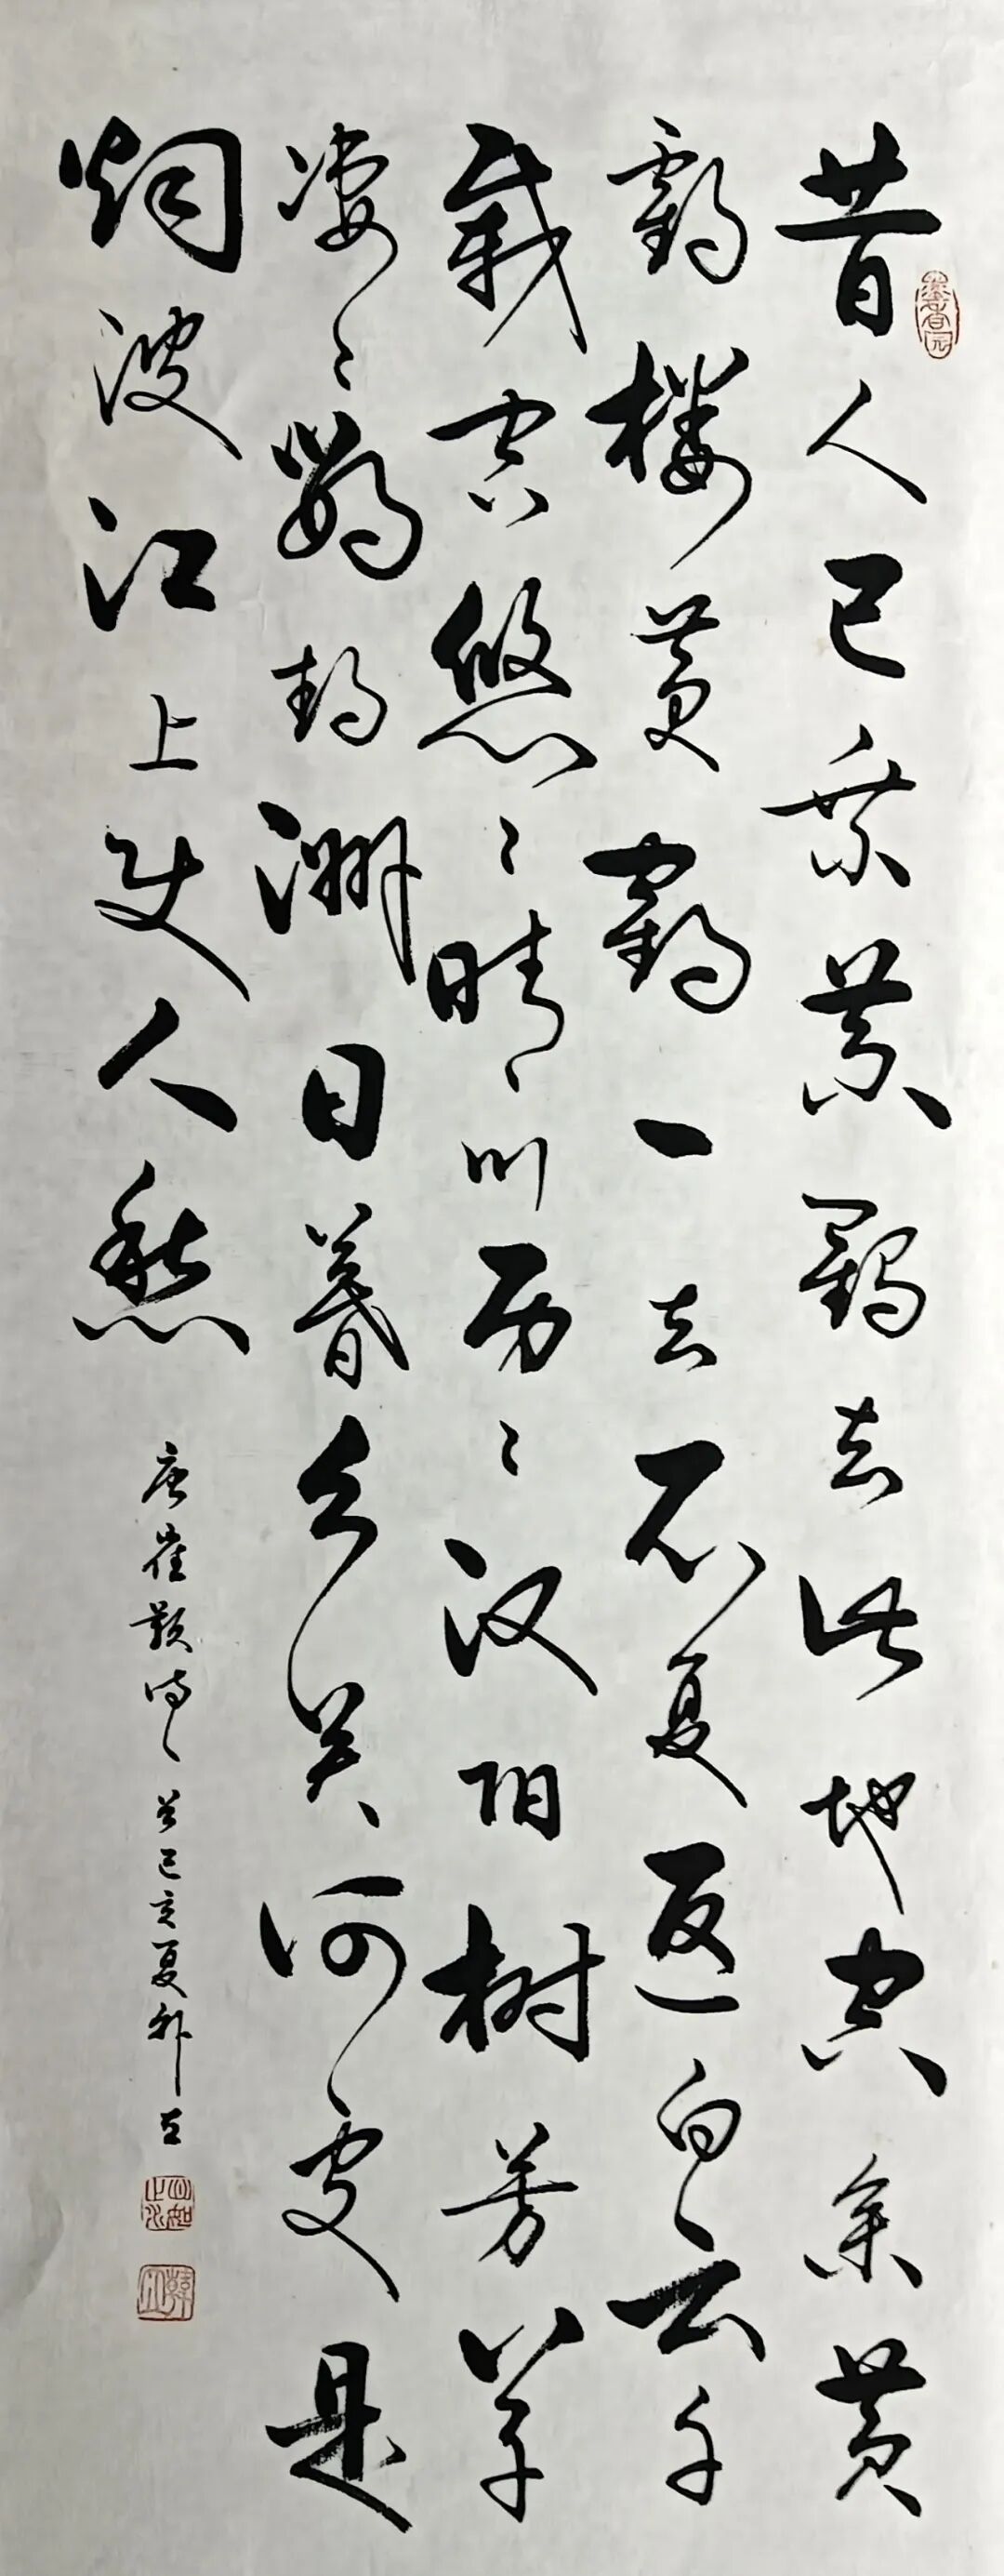 昔人已乘黄鹤去此地空余黄
鹤楼黄鹤一去不复返白云千
载空悠々晴川历々汉阳树芳草
凄々鹦鹉洲日暮乡关何处是
烟波江上使人愁
唐崔颢诗一首己亥夏
墨香园